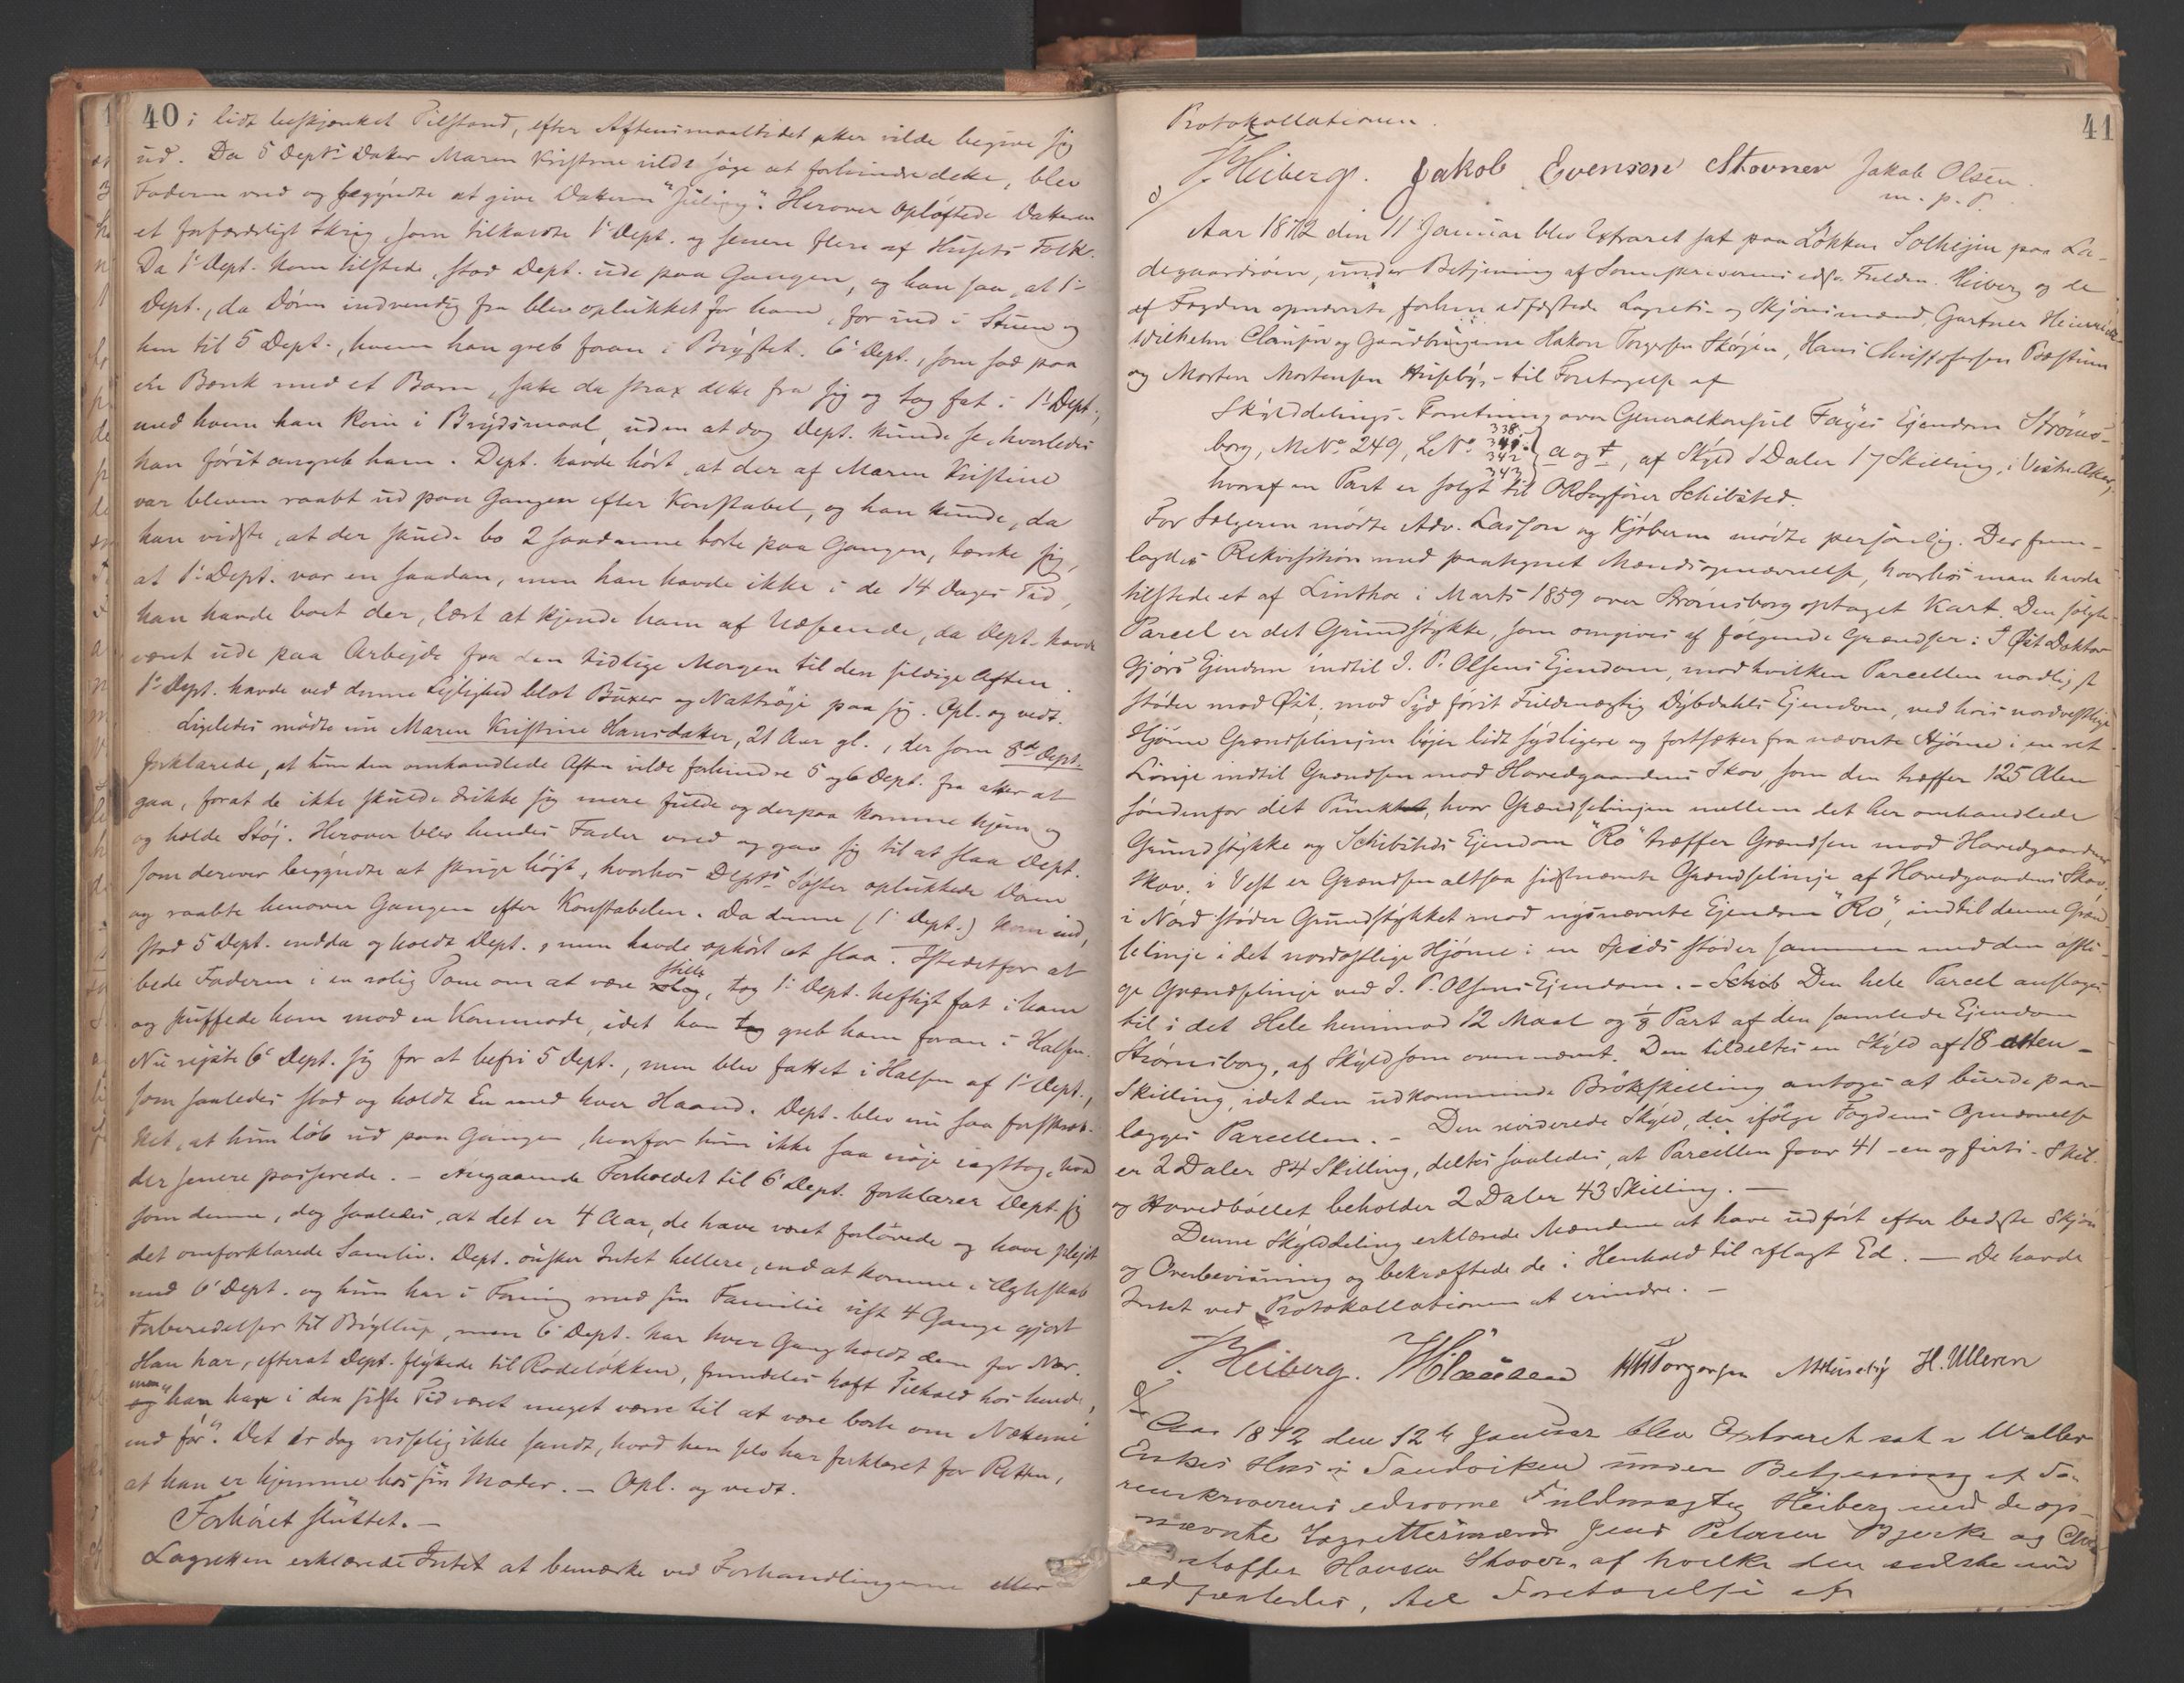 40
i lidt beskjænket Tilstand, efter Aftensmaaltidet atter vilde begive sig
ud. Da 5 Depts Datter Maren Kristine vilde søge at forhindre dette, blev
Faderen vred og begyndte at give Datteren "Juling". Herover opløftede Datteren
et forfærdeligt Skrig, som tilkaldte 1' Dept. og senere flere af Husets Folk.
Da 1' Dept. kom tilstede, stod Dept. ude paa Gangen, og han saa, at 1'
Dept., da Døren indvendig fra blev oplukket for ham, for ind i Stuen og
hen til 5 Dept., hvem han greb foran i Brystet. 6' Dept., som sad paa
en Bænk med et Barn, satte da strax dette fra sig og tog fat i 1' Dept.,
med hvem han kom i Brydsmaal, uden at dog Dept. kunde se, hvorledes
han først angreb ham. Dept. havde hørt, at der af Maren Kristine
var bleven raabt ud paa Gangen efter Konstabel, og han kunde, da
han vidste, at der skulde bo 2 saadanne borte paa Gangen, tænke sig,
at 1' Dept. var en saadan, men han havde ikke i de 14 Dages Tid,
han havde boet der, lært at kjende ham af Udseende, da Dept. havde
været ude paa Arbejde fra den tidlige Morgen til den sildige Aften.
1' Dept. havde ved denne Lejlighed blot Buxer og Nattrøje paa sig. Opl. og vedt.
Ligeledes mødte nu Maren Kristine Hansdatter, 21 Aar gl., der som 8de Dept.
forklarede, at hun den omhandlede Aften vilde forhindre 5 og 6 Dept. fra atter at
gaa, forat de ikke skulde drikke sig mere fulde og derpaa komme hjem og
og holde Støj. Herover blev hendes Fader vred og gav sig til at slaa Dept.
som derover begyndte at skrige højt, hvorhos Depts Søster oplukkede Døren
og raabte henover Gangen efter Konstabelen. Da denne (1' Dept.) kom ind,
stod 5 Dept. endda og holdt Dept., men havde ophørt at slaa. Istedetfor at
bede Faderen i en rolig Tone om at være stille, tog 1' Dept. heftigt fat i ham
og puffede ham mod en Kommode, idet han tog greb ham foran i Halsen.
Nu rejste 6' Dept. sig for at befri 5 Dept., men blev fattet i Halsen af 1' Dept.,
som saaledes stod og holdt En med hver Haand. Dept. blev nu saa forskræk-
ket, at hun løb ud paa Gangen, hvorfor hun ikke saa nøje iagttog, hvad
der senere passerede. – Angaaende Forholdet til 6' Dept. forklarer Dept. sig
som denne, dog saaledes, at det er 4 Aar, de have været forlovede og have plejet
det omforklarede Samliv. Dept. ønsker Intet hellere, end at komme i Ægteskab
med 6' Dept. og hun har i Forening med sin Familie vist 4 Gange gjort
Forberedelser til Bryllup, men 6' Dept. har hver Gang holdt dem for Nar.
Han har, efterat Dept. flyttede til Rodeløkken, fremdeles haft Tilhold hos hende,
men han har i den sidste Tid været meget værre til at være borte om Nætterne
end før. Det er dog visselig ikke sandt, hvad han selv har forklaret for Retten,
at han er hjemme hos sin Moder. – Opl. og vedt.
Forhøret sluttet. –
Lagretten erklærede Intet at bemærke ved Forhandlingerne eller
41
Protokollationen.
Heiberg. Jakob Evensen Stovner Jakob Olsen.
m. p. P.
Aar 1872 den 11 Januar blev Extraret sat paa Løkken Solhejm paa La-
degaardsøen, under Betjening af Sorenskriverens edsv. Fuldm. Heiberg og de
af Fogden opnævnte, forhen edfæstede Lagrets- og Skjønsmænd, Gartner Heinrich
Wilhelm Clausen og Gaardbrugerne Hakon Torgersen Skøjen, Hans Christofersen Bæstum
og Morten Mortensen Huseby, – til Foretagelse af
Skylddelings-Forretning over Generalkonsul Fayes Ejendom Strøms-
borg, MNo. 249, LNo. 338. 341. 342 343 } a og t, af Skyld 1 Daler 17 Skilling, i Vestre Aker,
hvoraf en Part er solgt til ORSagfører Schibsted.
For Sælgeren mødte Adv. Lasson og Kjøberen mødte personlig. Der frem-
lagdes Rekvisition med paategnet Mændsopnævnelse, hvorhos man havde
tilstede et af Linthoe i Marts 1859 over Strømsborg optaget Kart. Den solgte
Parcel er det Grundstykke, som omgives af følgende Grændser: I Øst Doktor
Gjørs Ejendom indtil J. P. Olsens Ejendom, mod hvilken Parcellen nordligst
støder mod Øst; mod Syd først Fuldmægtig Dybdahls Ejendom, ved hvis nordvestlige
Hjørne Grændselinjen bøjer lidt sydligere og fortsætter fra nævnte Hjørne i en ret
Linje indtil Grændsen mod Hovedgaardens Skov, som den træffer 125 Alen
søndenfor det Punkt, hvor Grændselinjen mellem det her omhandlede
Grundstykke og Schibsteds Ejendom "Ro" træffer Grændsen mod Hovedgaardens
Skov. i Vest er Grændsen altsaa sidstnævnte Grændselinje af Hovedgaardens Skov.
i Nord støder Grundstykket mod nysnævnte Ejendom "Ro", indtil denne Græn-
selinje i det nordøstlige Hjørne i en Spids støder sammen med den østli-
ge Grændselinje ved J. P. Olsens Ejendom. – Schib Den hele Parcel ansloges
til i det Hele henimod 12 Maal og 1/8 Part af den samlede Ejendom
Strømsborg, af Skyld som ovennævnt. Den tildeltes en Skyld af 18 atten –
Skilling, idet den udkommende Brøkskilling antoges at burde paa-
lægges Parcellen. – Den reviderede Skyld, der ifølge Fogdens Opnævnelse
er 2 Daler 84 Skilling, deltes saaledes, at Parcellen faar 41 – en og firti – Skil.
og Hovedbøllet beholder 2 Daler 43 Skilling. –
Denne Skylddeling erklærede Mændene at have udført efter bedste Skjøn
og Overbevisning og bekræftede de i Henhold til aflagt Ed. – De havde
Intet ved Protokollationen at erindre. –
Heiberg. WClausen HTorgersen MHuseby H. Ulleren
Aar 1872 den 12te Januar blev Extraret sat i Walles
Enkes Hus i Sandviken under Betjening af So-
renskriverens edsvorne Fuldmægtig Heiberg med de op-
nævnte Lagrettesmænd Jens Petersen Bjerke og Chri-
stoffer Hansen Skover, af hvilke den sidste nu
edfæstedes, til Foretagelse af